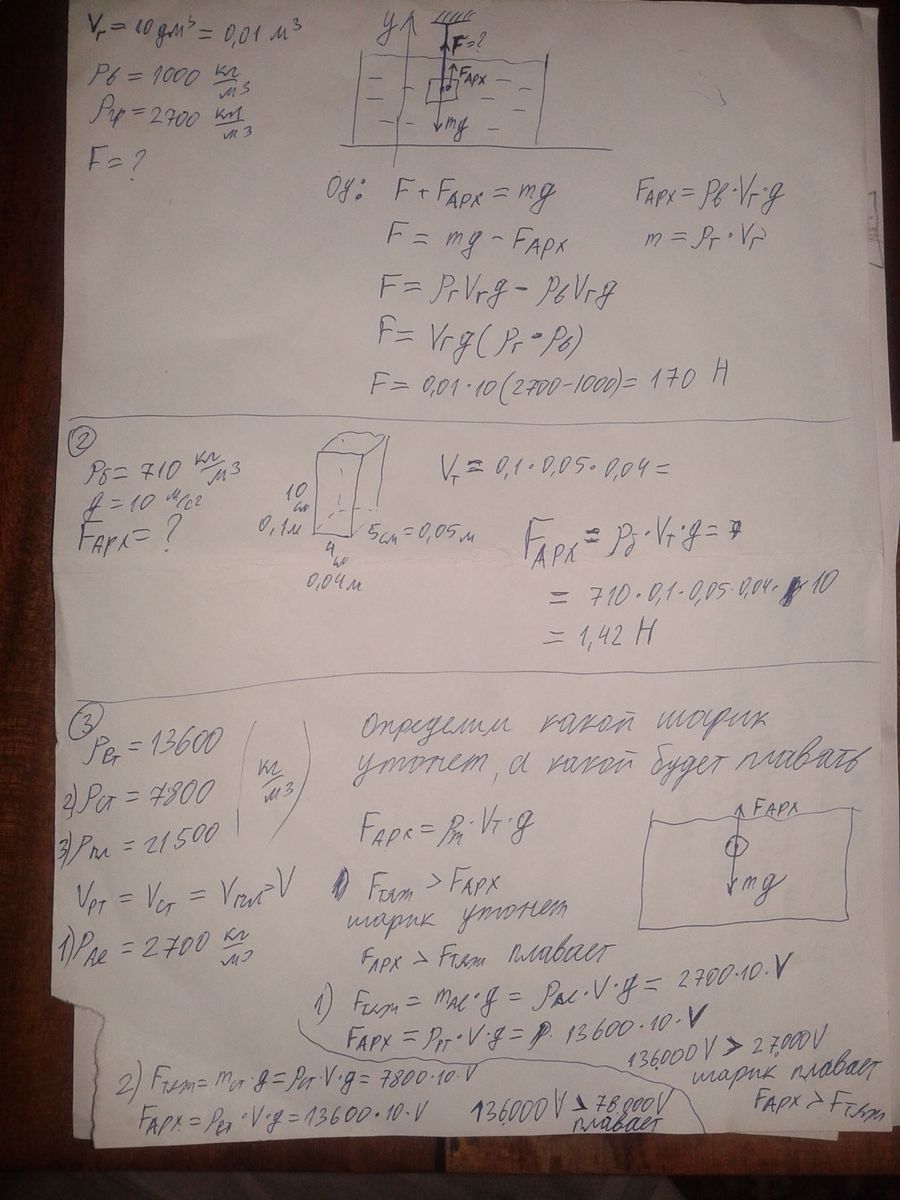 Vг = 10 дм³ = 0,01 м³
ρв = 1000 кг/м³
ρгр = 2700 кг/м³
F = ?
y
F = ?
FАРХ
mg
Оу: F + FАРХ = mg
FАРХ = ρв · Vг · g
F = mg - FАРХ
m = ρг · Vг
F = ρг Vг g - ρв Vг g
F = Vг g (ρг - ρв)
F = 0,01 · 10 (2700 - 1000) = 170 Н
②
ρб = 710 кг/м³
g = 10 м/с²
FАРХ = ?
10 см
0,1 м
4 см
0,04 м
5 см = 0,05 м
Vт = 0,1 · 0,05 · 0,04 =
FАРХ = ρб · Vт · g =
= 710 · 0,1 · 0,05 · 0,04 · 10
= 1,42 Н
③
ρрт = 13600
2) ρст = 7800
3) ρпл = 21500
(кг/м³)
Vрт = Vст = Vпл = V
1) ρAl = 2700 кг/м³
Определим какой шарик
утонет, а какой будет плавать
FАРХ = ρт · Vт · g
FАРХ
mg
Fтяж > FАРХ
шарик утонет
FАРХ > Fтяж плавает
1) Fтяж = mAl · g = ρAl · V · g = 2700 · 10 · V
FАРХ = ρрт · V · g = 13600 · 10 · V
136000 V > 27000 V
шарик плавает
FАРХ > Fтяж
2) Fтяж = mст · g = ρст · V · g = 7800 · 10 · V
FАРХ = ρрт · V · g = 13600 · 10 · V
136000 V > 78000 V
плавает